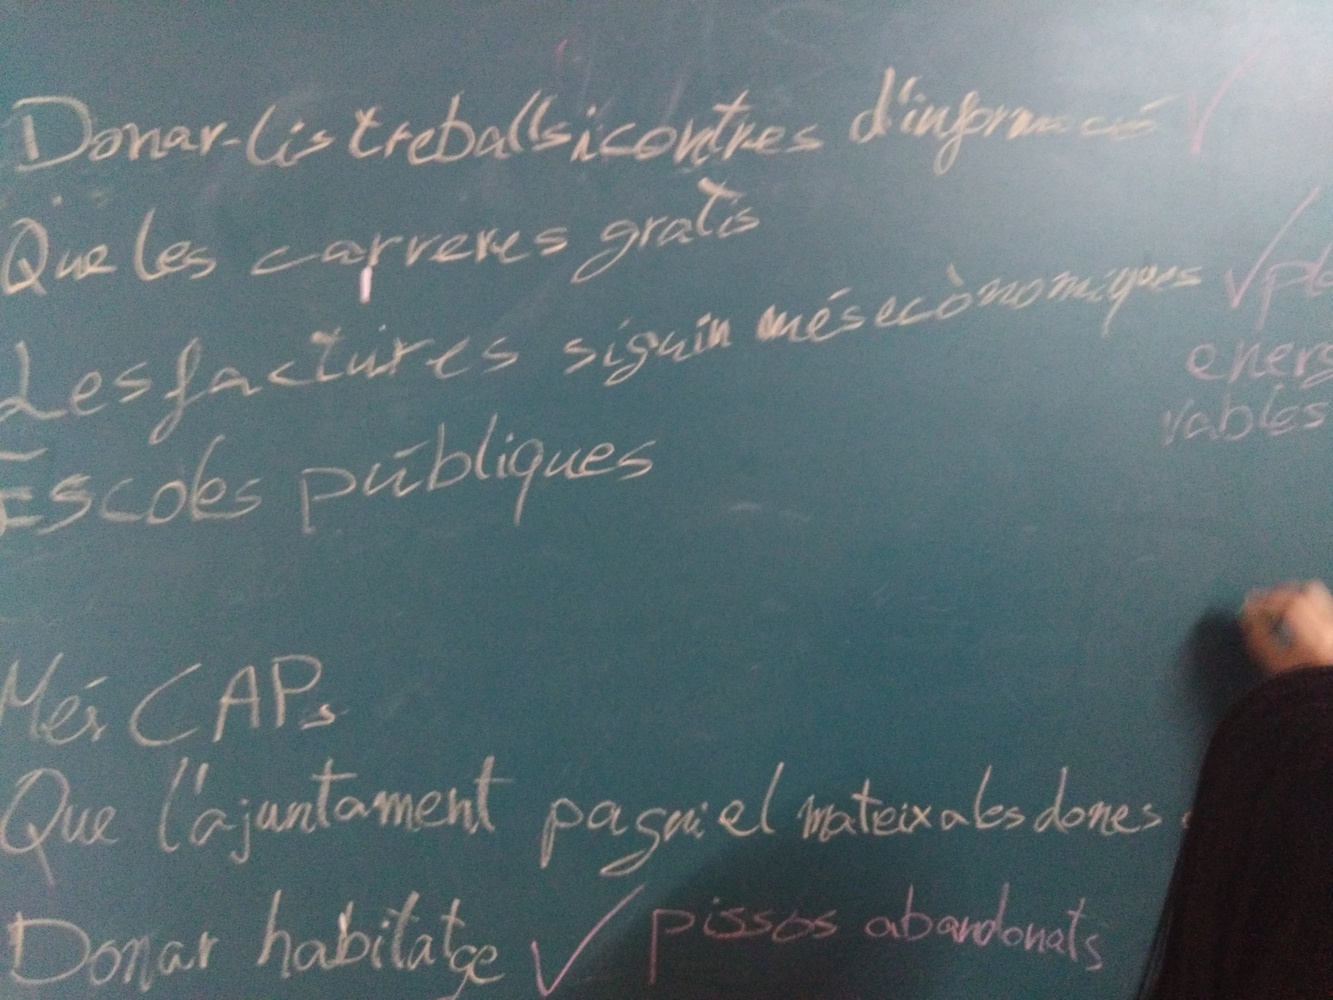 Donar-lis treballs i contres d'informació
Que les carreres gratis
Les factures siguin més ecònomiques
energ
vables
Escoles públiques
Més CAPs
Que l'ajuntament pagui el mateix a les dones
Donar habitatge pissos abandonats